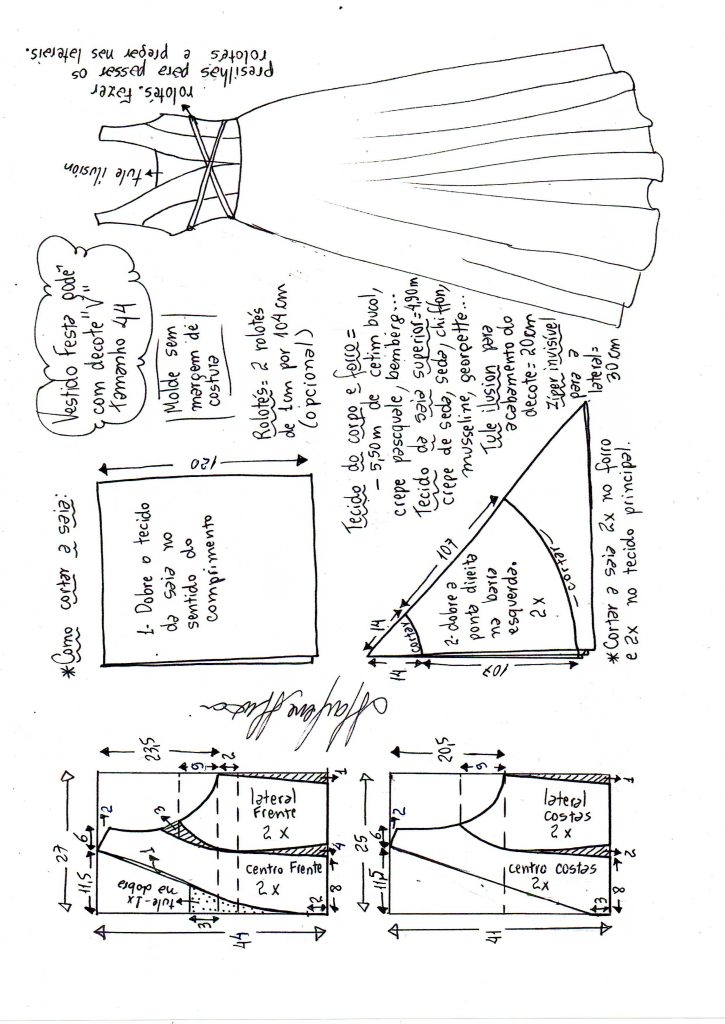 Vestido Festa godê
com decote "V"
Tamanho 44
Molde sem
margem de
costura
Rolotés= 2 rolotés
de 1cm por 104cm
(opcional)
tule ilusión
rolotés. Fazer
presilhas para passar os
rolotés e pregar nas laterais.
Tecido do corpo e forro =
- 5,50m de cetim bucol,
crepe pascquale, bemberg...
Tecido da saia superior=4,90m
crepe de seda, seda, chiffon,
musseline, georgette...
Tule ilusion para
acabamento do
decote=20cm
Zíper invisível
para a
lateral=
30cm
*Como cortar a saia:
120
1- Dobre o tecido
da saia no
sentido do
comprimento
14
107
cortar
14
107
2-dobre a
ponta direita
na barra
esquerda.
2x
cortar
*Cortar a saia 2x no forro
e 2x no tecido principal.
27
11,5
6
2
23,5
9
2
3
1
lateral
Frente
2x
centro Frente
2x
tule-1x
na dobra
3
2
8
4
1
44
25
11,5
6
2
20,5
9
lateral
costas
2x
centro costas
2x
3
8
2
1
41